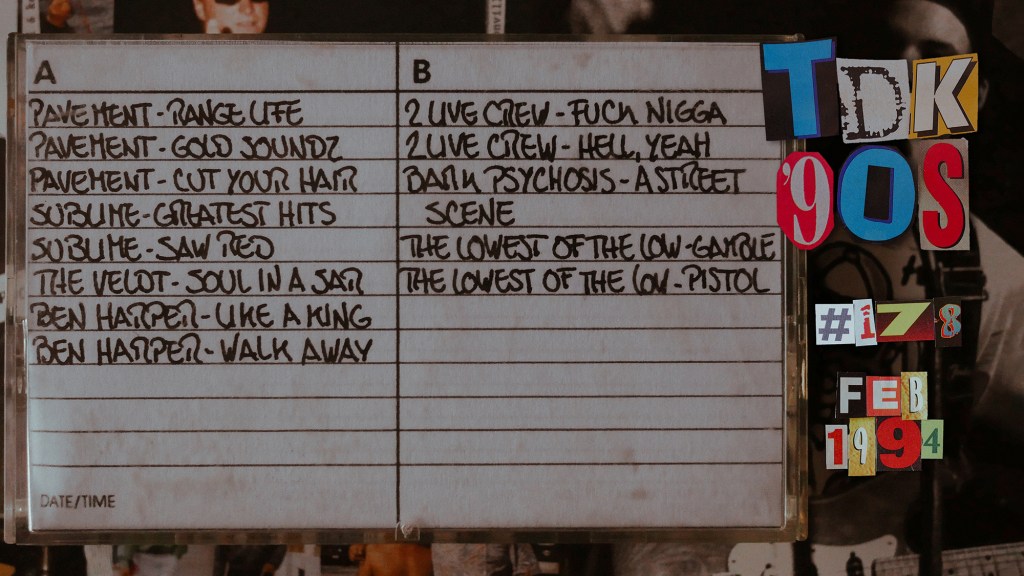 A
PAVEMENT - RANGE LIFE
PAVEMENT - GOLD SOUNDZ
PAVEMENT - CUT YOUR HAIR
SUBLIME - GREATEST HITS
SUBLIME - SAW RED
THE VELDT - SOUL IN A JAR
BEN HARPER - LIKE A KING
BEN HARPER - WALK AWAY
DATE/TIME
B
2 LIVE CREW - FUCK NIGGA
2 LIVE CREW - HELL, YEAH
BARK PSYCHOSIS - A STREET
SCENE
THE LOWEST OF THE LOW - GAMBLE
THE LOWEST OF THE LOW - PISTOL
TDK
'90S
#178
FEB
1994